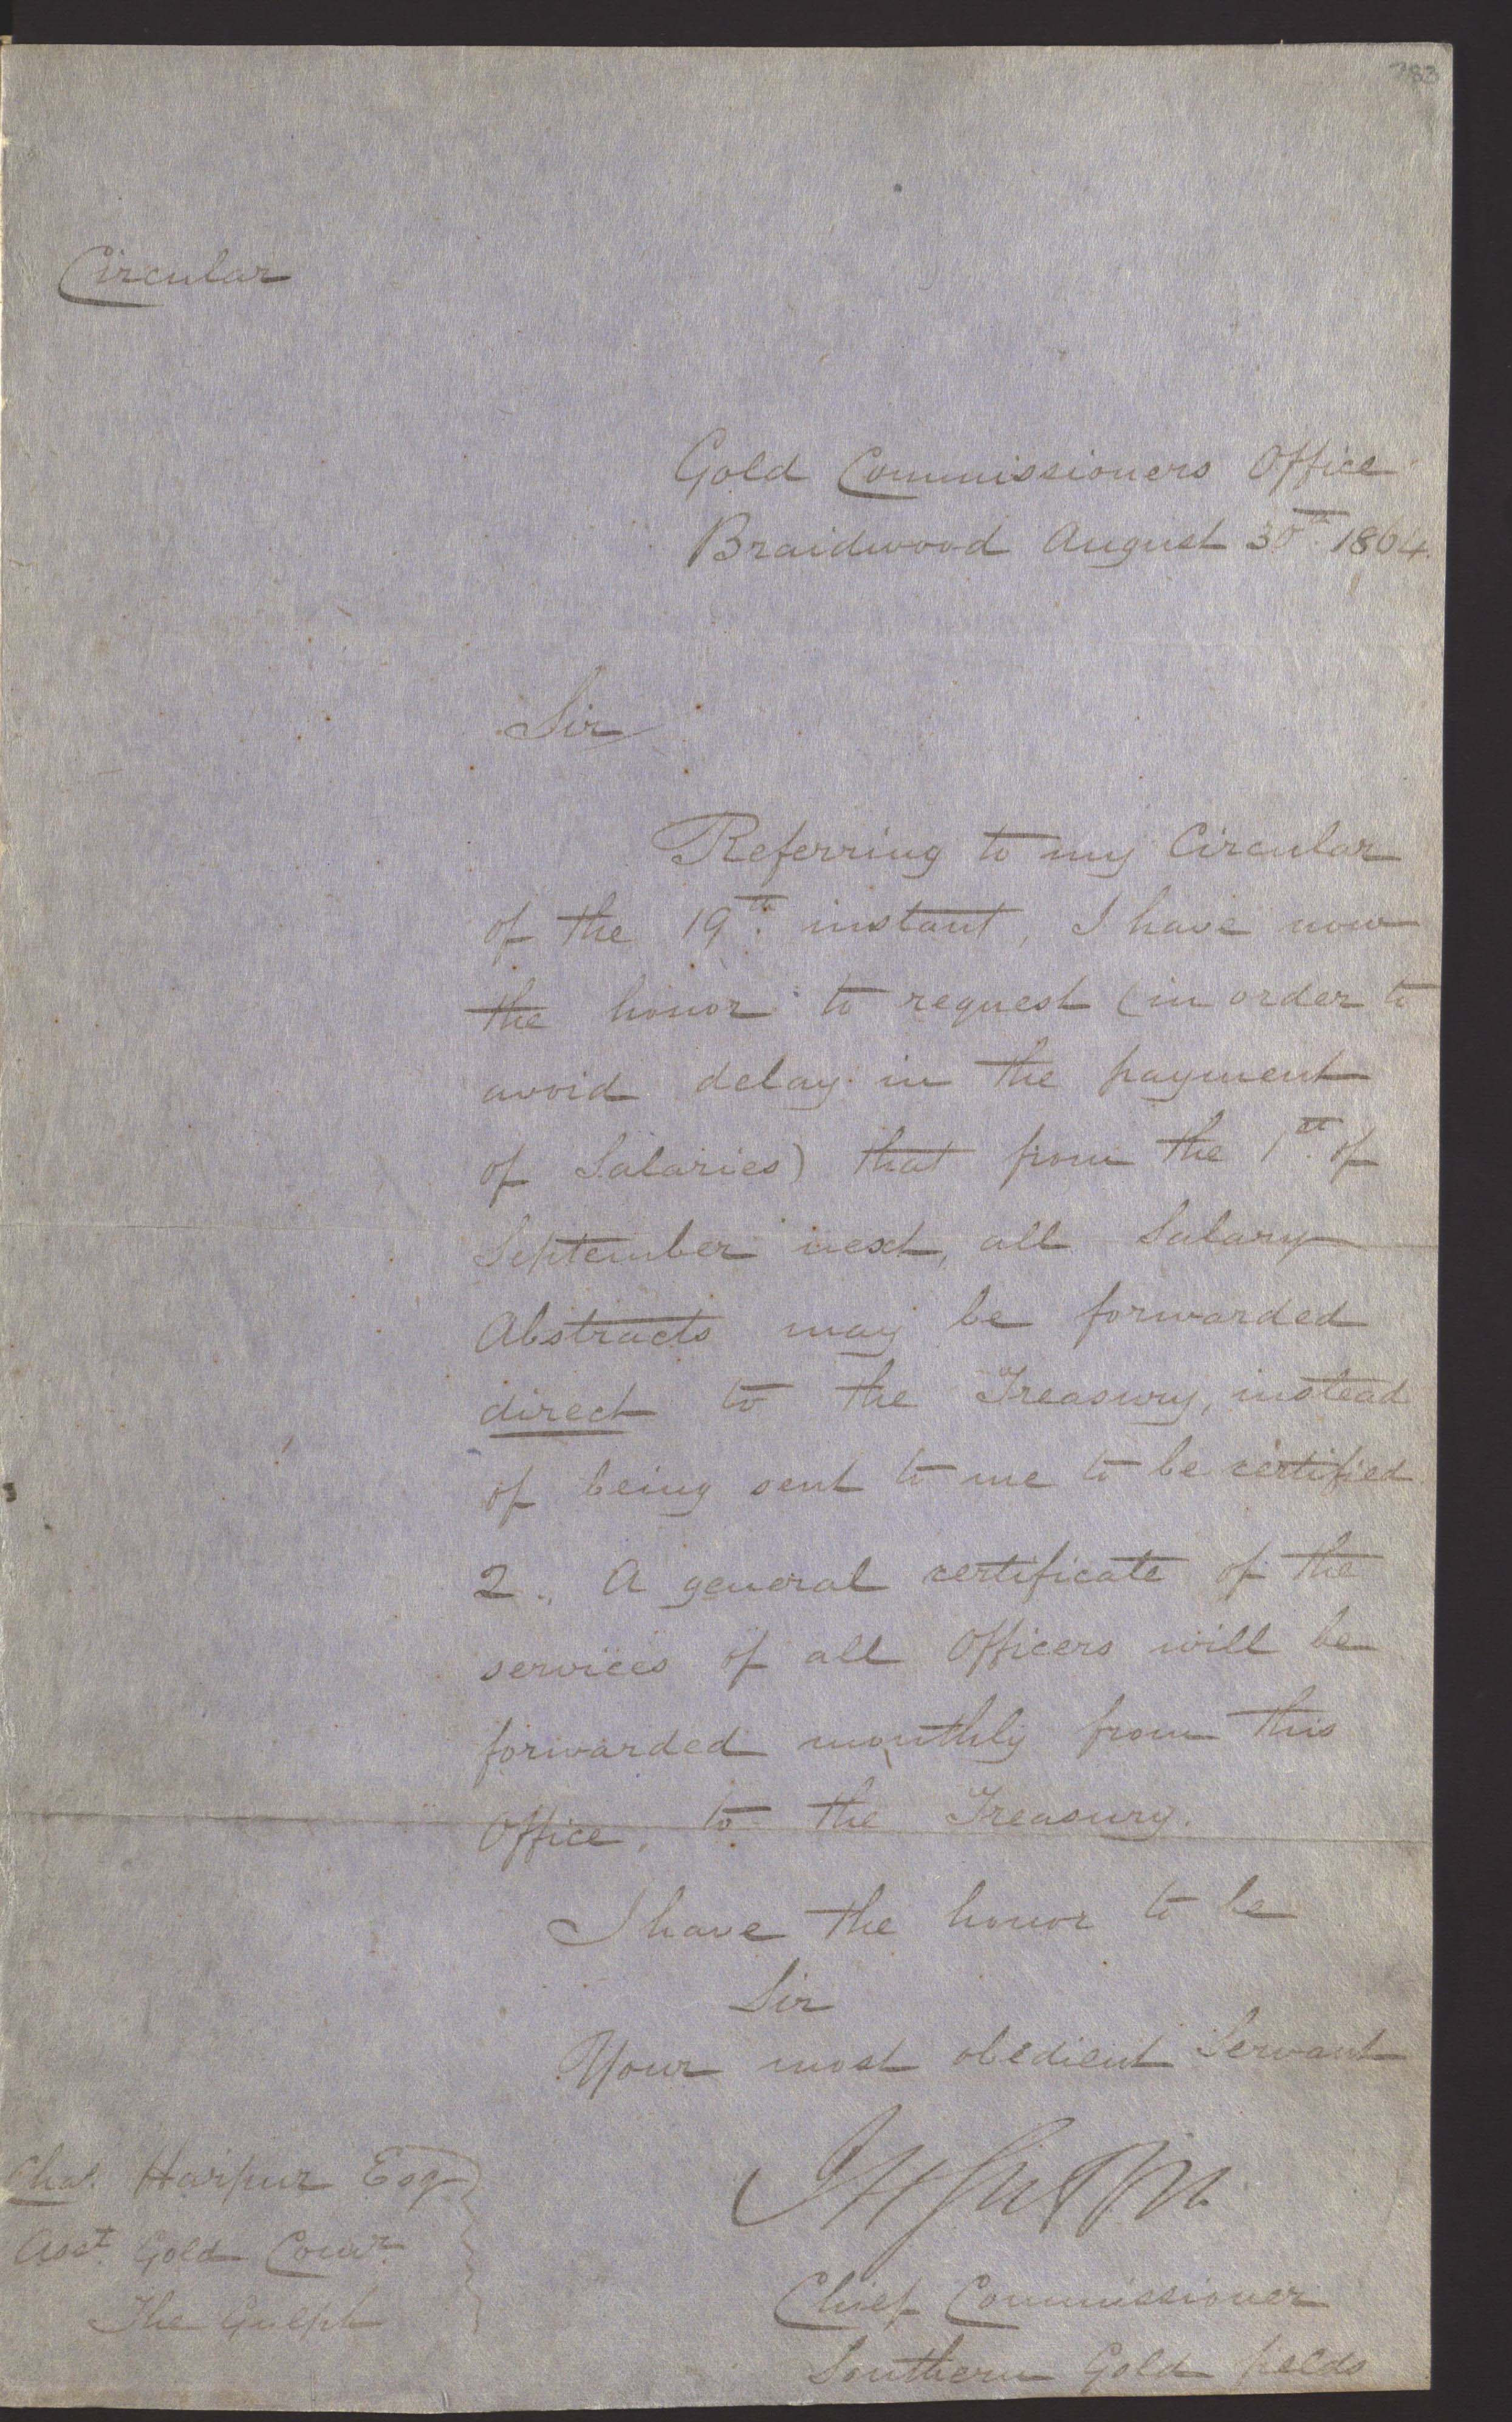 783
Circular
Gold Commissioners Office
Braidwood August 30th. 1864.
Sir
Referring to my Circular
of the 19th. instant, I have now
the honor to request (in order to
avoid delay in the payment
of Salaries) that from the 1st. of
September next, all Salary
Abstracts may be forwarded
direct to the Treasury, instead
of being sent to me to be certified.
2. A general certificate of the
services of all Officers will be
forwarded monthly from this
Office, to the Treasury.
I have the honor to be
Sir
Your most obedient Servant
Chief Commissioner
Southern Gold fields
Chas. Harpur Esq
Asst. Gold Commr.
The Gulph